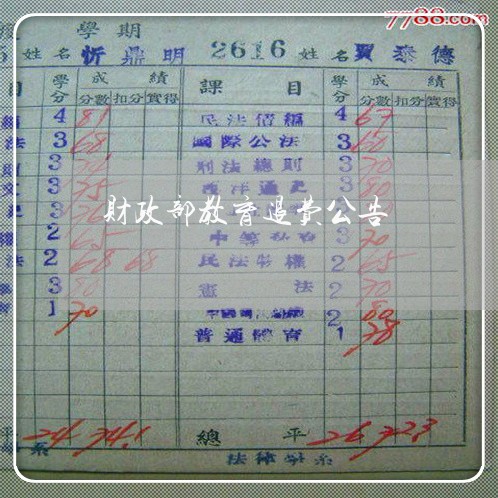 7788.com
學期
姓名 忻鼎明 2616 姓名 賈泰德
目 學分 成績 課目 學分 成績
分數 扣分 實得 分數 扣分 實得
4 81 民法債編 4 67
法 3 68 國際公法 3 60
3 刑法總則 3 70
3 75 西洋通史 3 80
3
2 65 3 70
法 2 68 68 民法物權 2 65
3 80 憲法 2 70
2 80
1 70 普通體育 1 78
財政部教育退費公告
平 24 74.1 總平 26 72.3
系 法律學系